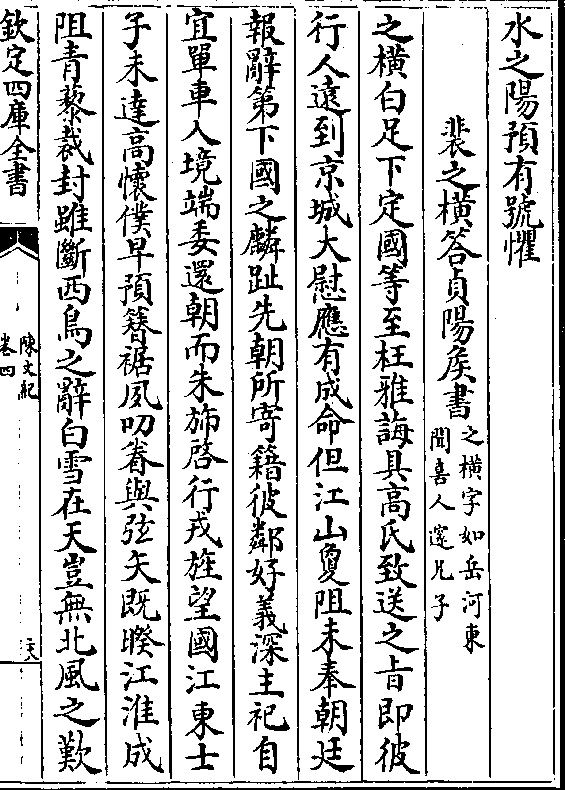 水之陽預有號懼
裴之横答貞陽侯書之横字如岳河東
聞喜人邃兄子
之横白足下定國等至枉雅誨具高氏致送之㫖即彼
行人遠到京城大慰應有成命但江山敻阻未奉朝廷
報辭第下國之麟趾先朝所寄籍彼鄰好義深主祀自
宜單車入境端委還朝而朱斾啓行戎旌望國江東士
子未達高懷僕早預簪裾夙叨眷與弦矢既暌江淮成
阻青藜裁封雖斷西鳥之辭白雪在天豈無北風之歎
欽定四庫全書
陳文紀
卷四
二六